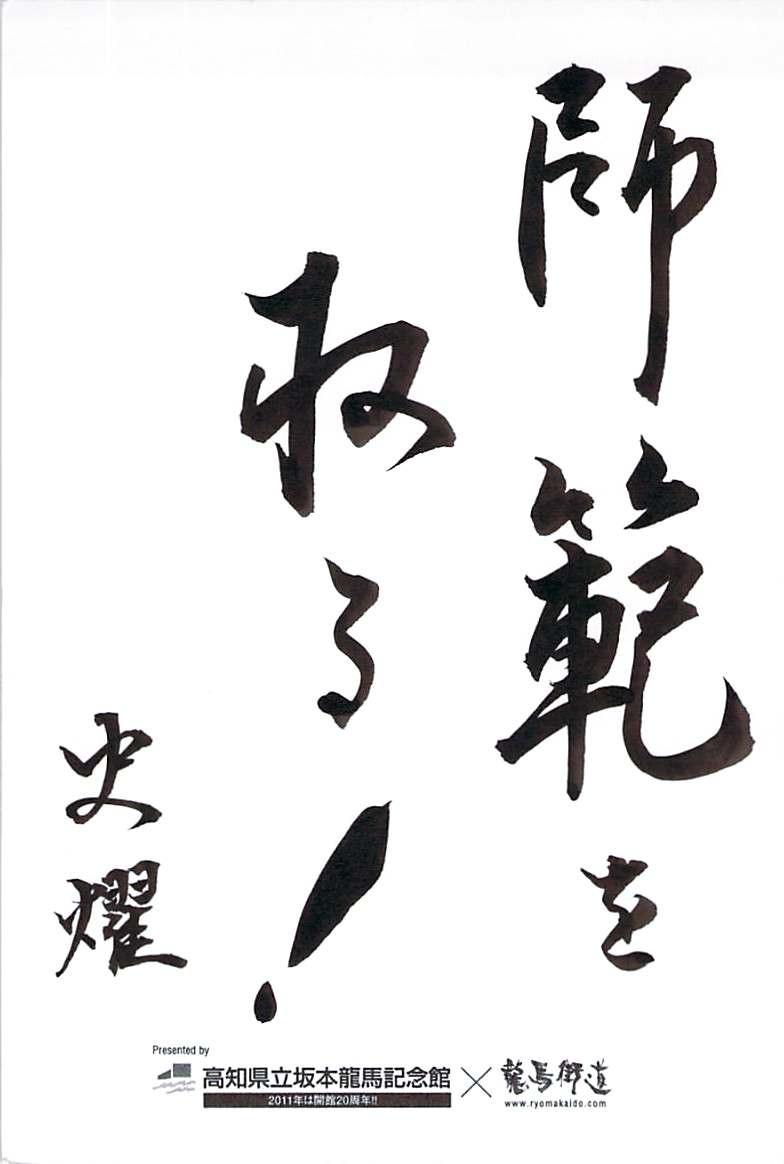 師範を
取る!
史燿
Presented by
高知県立坂本龍馬記念館
2011年は開館20周年!!
×
龍馬街道
www.ryomakaido.com